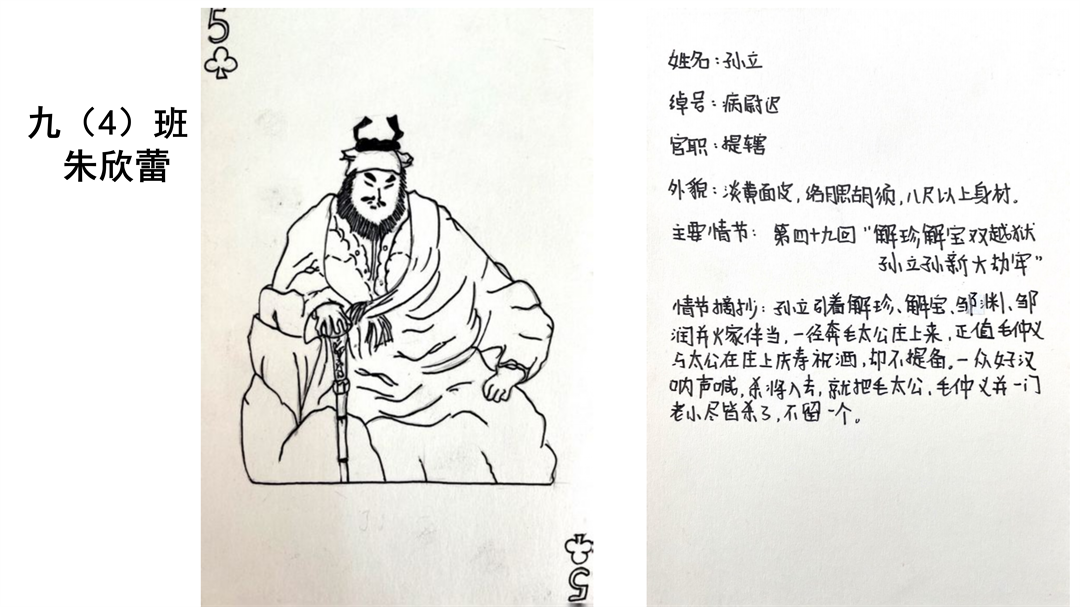 5
九（4）班
朱欣蕾
姓名：孙立
绰号：病尉迟
官职：提辖
外貌：淡黄面皮，络腮胡须，八尺以上身材。
主要情节：第四十九回“解珍解宝双越狱
孙立孙新大劫牢”
情节摘抄：孙立引着解珍、解宝、邹渊、邹
润并火家伴当，一径奔毛太公庄上来，正值毛仲义
与太公在庄上庆寿祝酒，却不提备。一众好汉
呐声喊，杀将入去，就把毛太公，毛仲义并一门
老小尽皆杀了，不留一个。
5